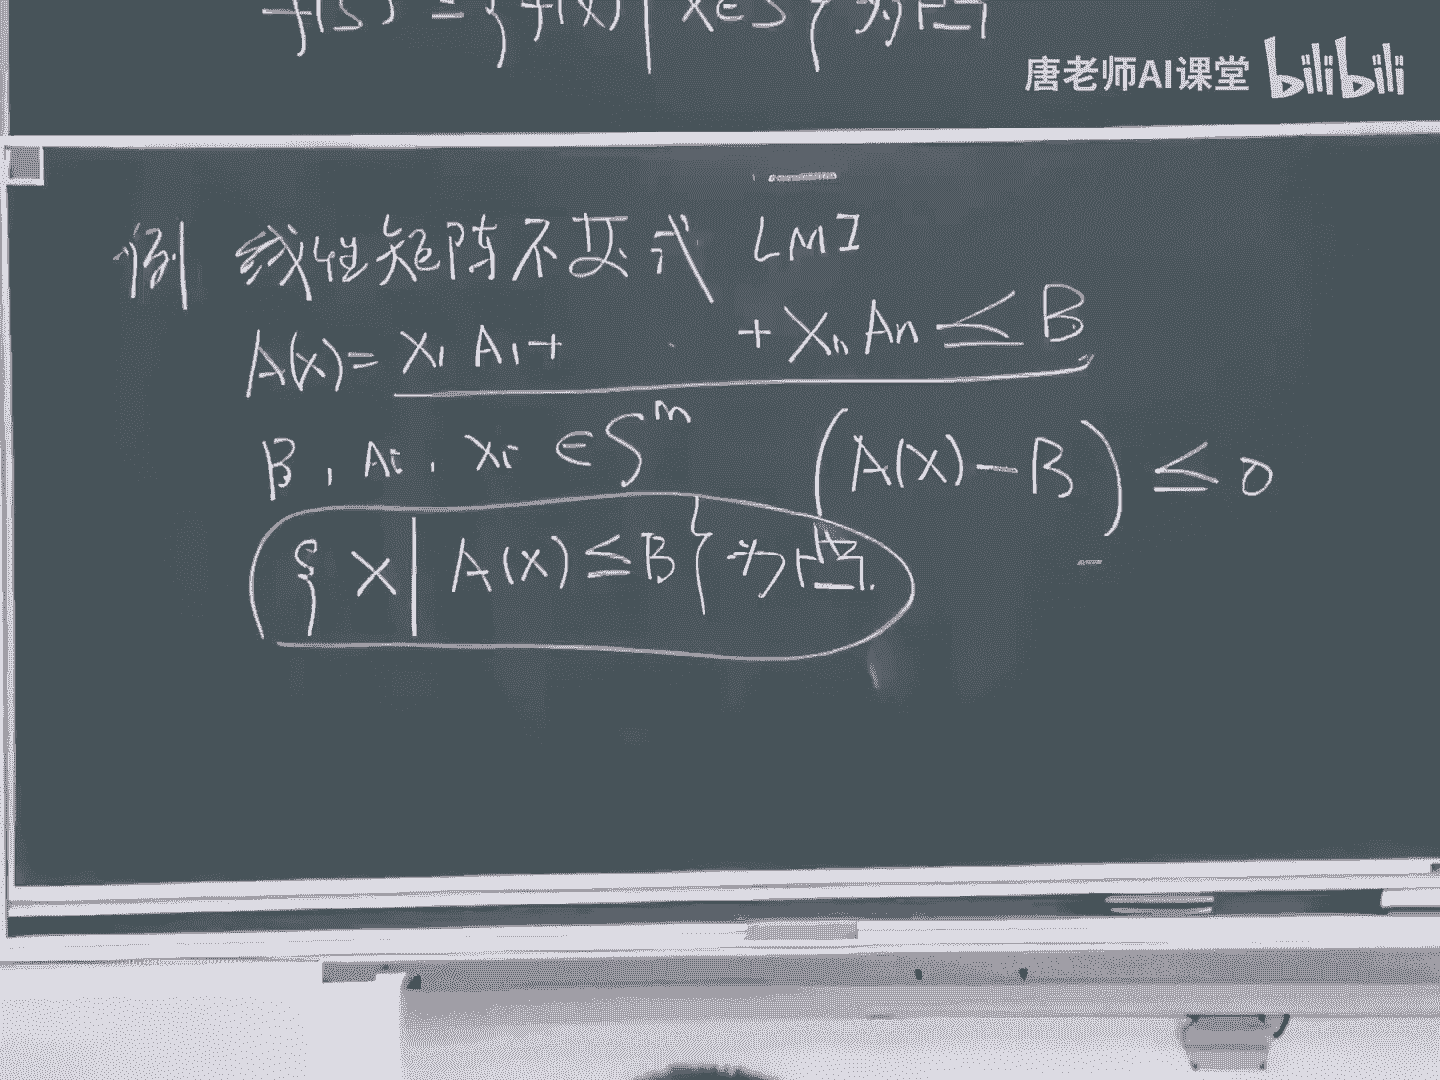 f(S) = { f(x) | x∈S } 为凸
唐老师AI课堂 bilibili
例 线性矩阵不等式 LMI
A(x) = x₁ A₁ + + xₙ Aₙ ≤ B
B , Ai , xi ∈ Sᵐ (A(x) - B) ≤ 0
{ x | A(x) ≤ B } 为凸.